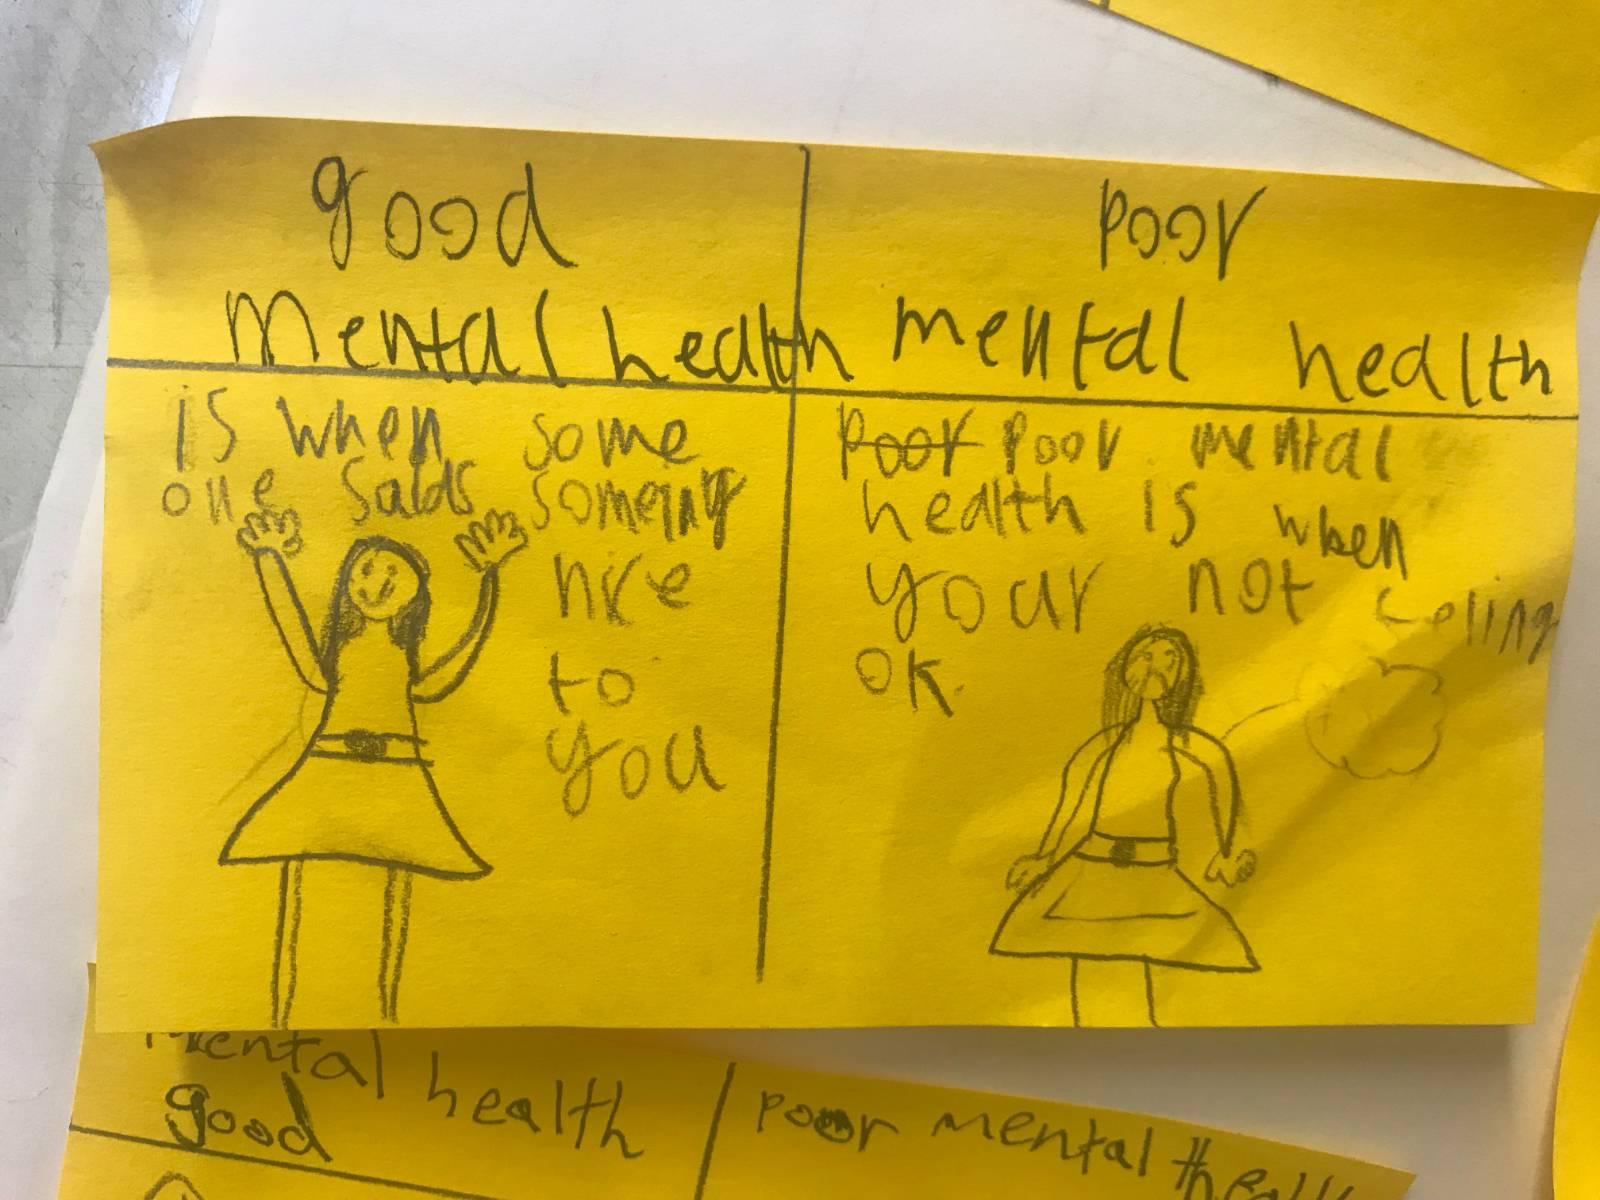 good
mental health
is when some
one saids someing
nice
to
you
poor
mental health
poor poor mental
health is when
your not feeling
ok.
mental health
good
poor mental health